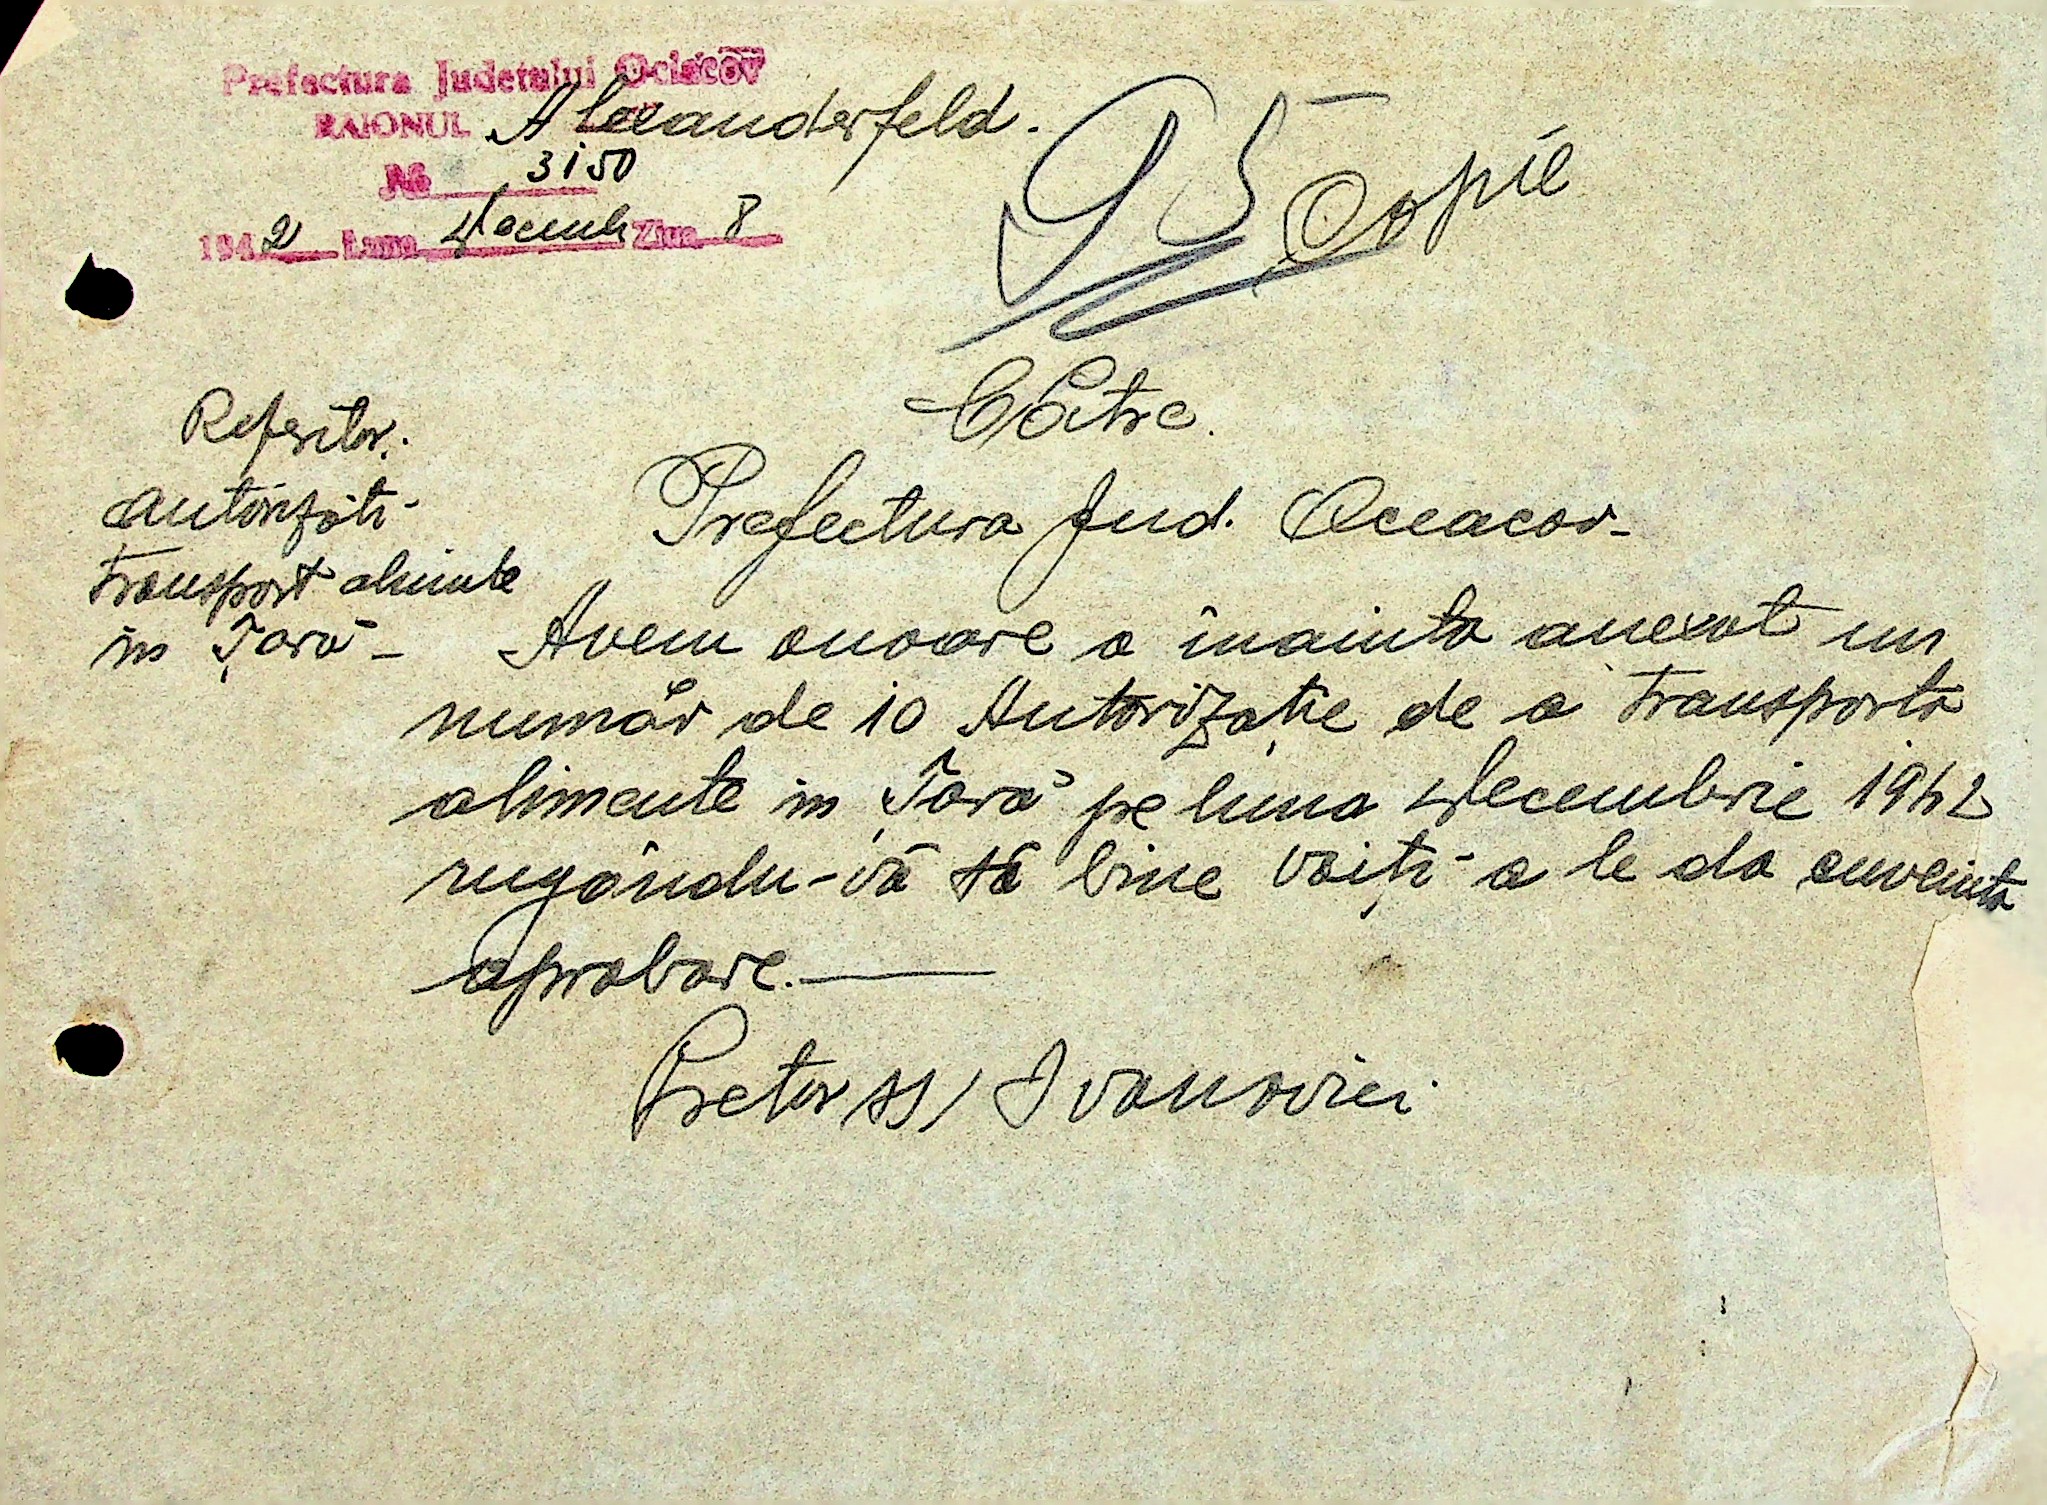 Prefectura Judetului Ociacov
RAIONUL Alexanderfeld.
No 3150
1942 Luna Decemb Ziua 8
95
Copie
Către.
Referitor.
autorizăti
transport alimente
in Țară -
Prefectura Jud. Oceacov -
Avem onoare a înainta anexat un
număr de 10 Autorizație de a transporta
alimente in Țară pe luna Decembrie 1942
rugându-vă să bine voiți a le da cuveinta
aprobare.
Pretor ss/ Ivanovici